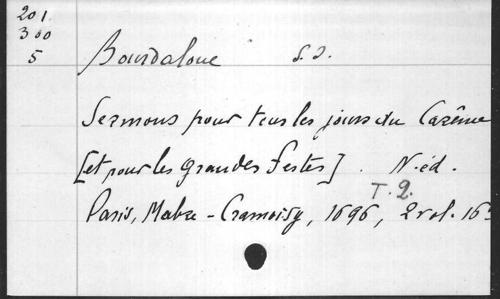 201.
300
5
Bourdaloue S.J.
Sermons pour tous les jours du Carême
[et pour les grandes festes]. N. éd.
T. 2.
Paris, Mabre-Cramoisy, 1696, 2 vol. 16º